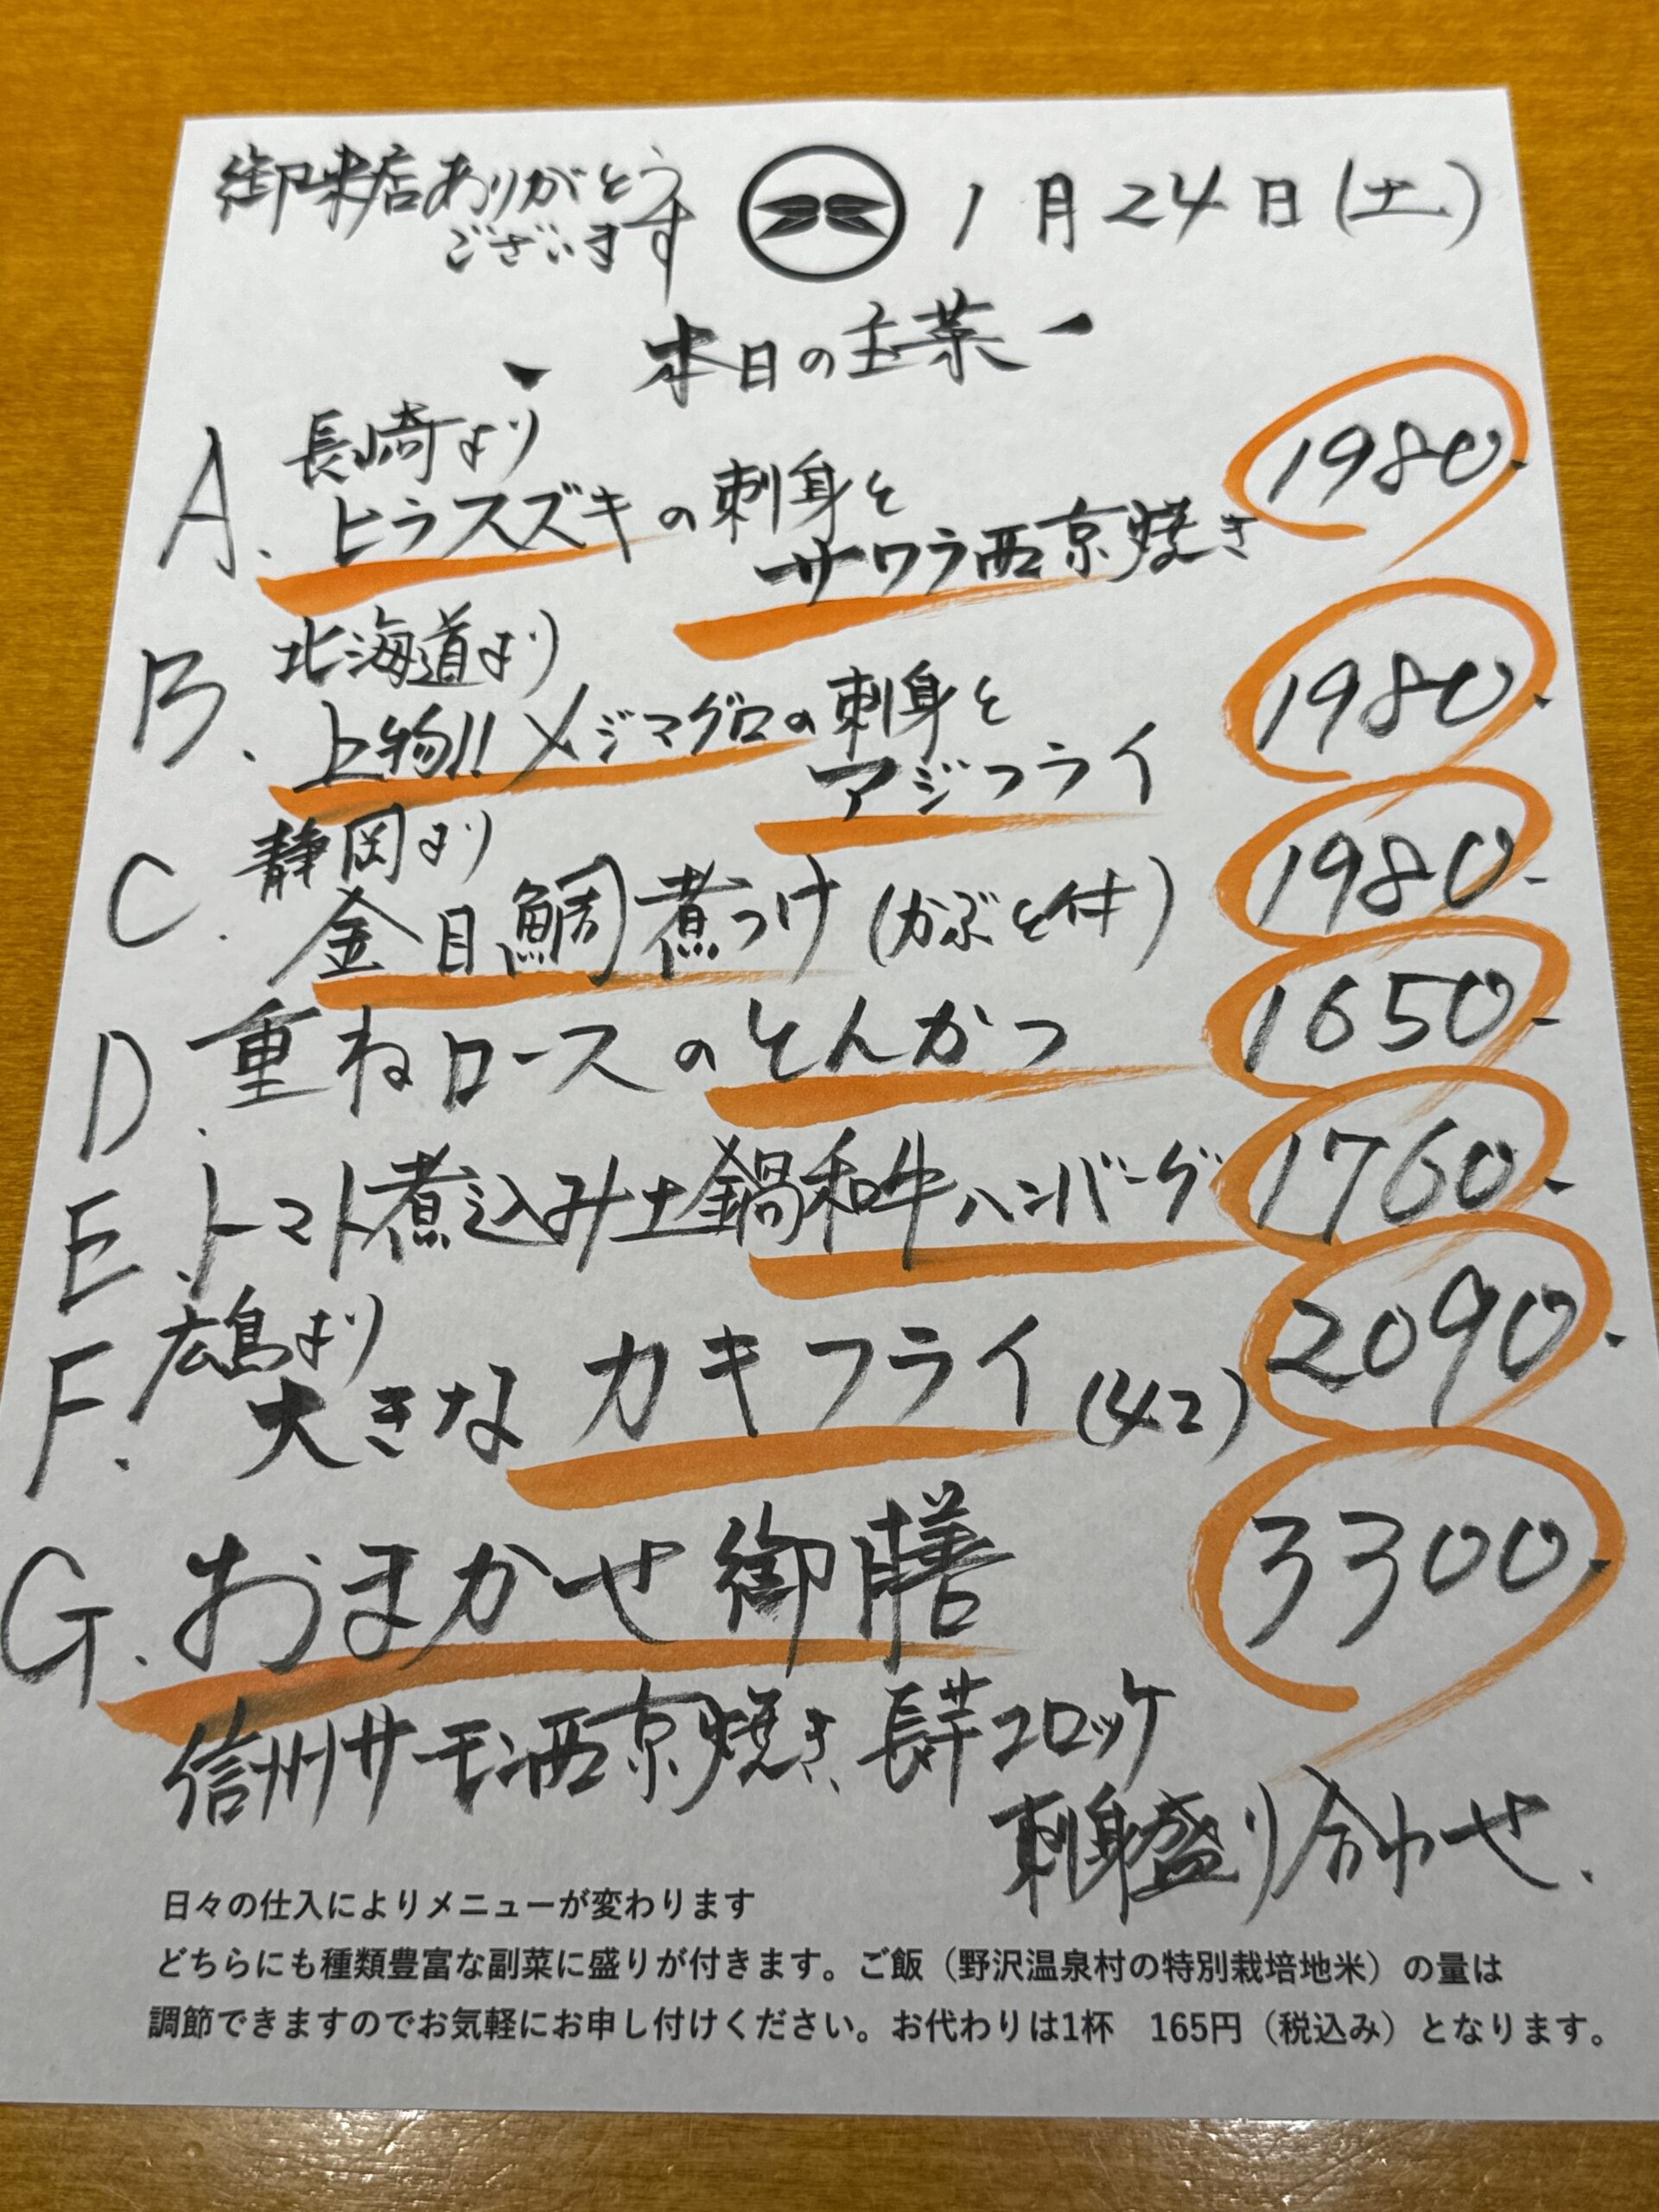 御来店ありがとう
ございます
1月24日(土)
本日の主菜
A. 長崎より
ヒラスズキの刺身と
サワラ西京焼き
1980.
B. 北海道より
上物!! メジマグロの刺身と
アジフライ
1980.
C. 静岡より
金目鯛煮つけ(かぶと付)
1980.
D. 重ねロースのとんかつ
1650.
E. トマト煮込み土鍋和牛ハンバーグ
1760.
F. 広島より
大きなカキフライ(4コ)
2090.
G. おまかせ御膳
3300.
信州サーモン西京焼き、長芋コロッケ
刺身盛り合わせ.
日々の仕入によりメニューが変わります
どちらにも種類豊富な副菜に盛りが付きます。ご飯（野沢温泉村の特別栽培地米）の量は
調節できますのでお気軽にお申し付けください。お代わりは1杯　165円（税込み）となります。